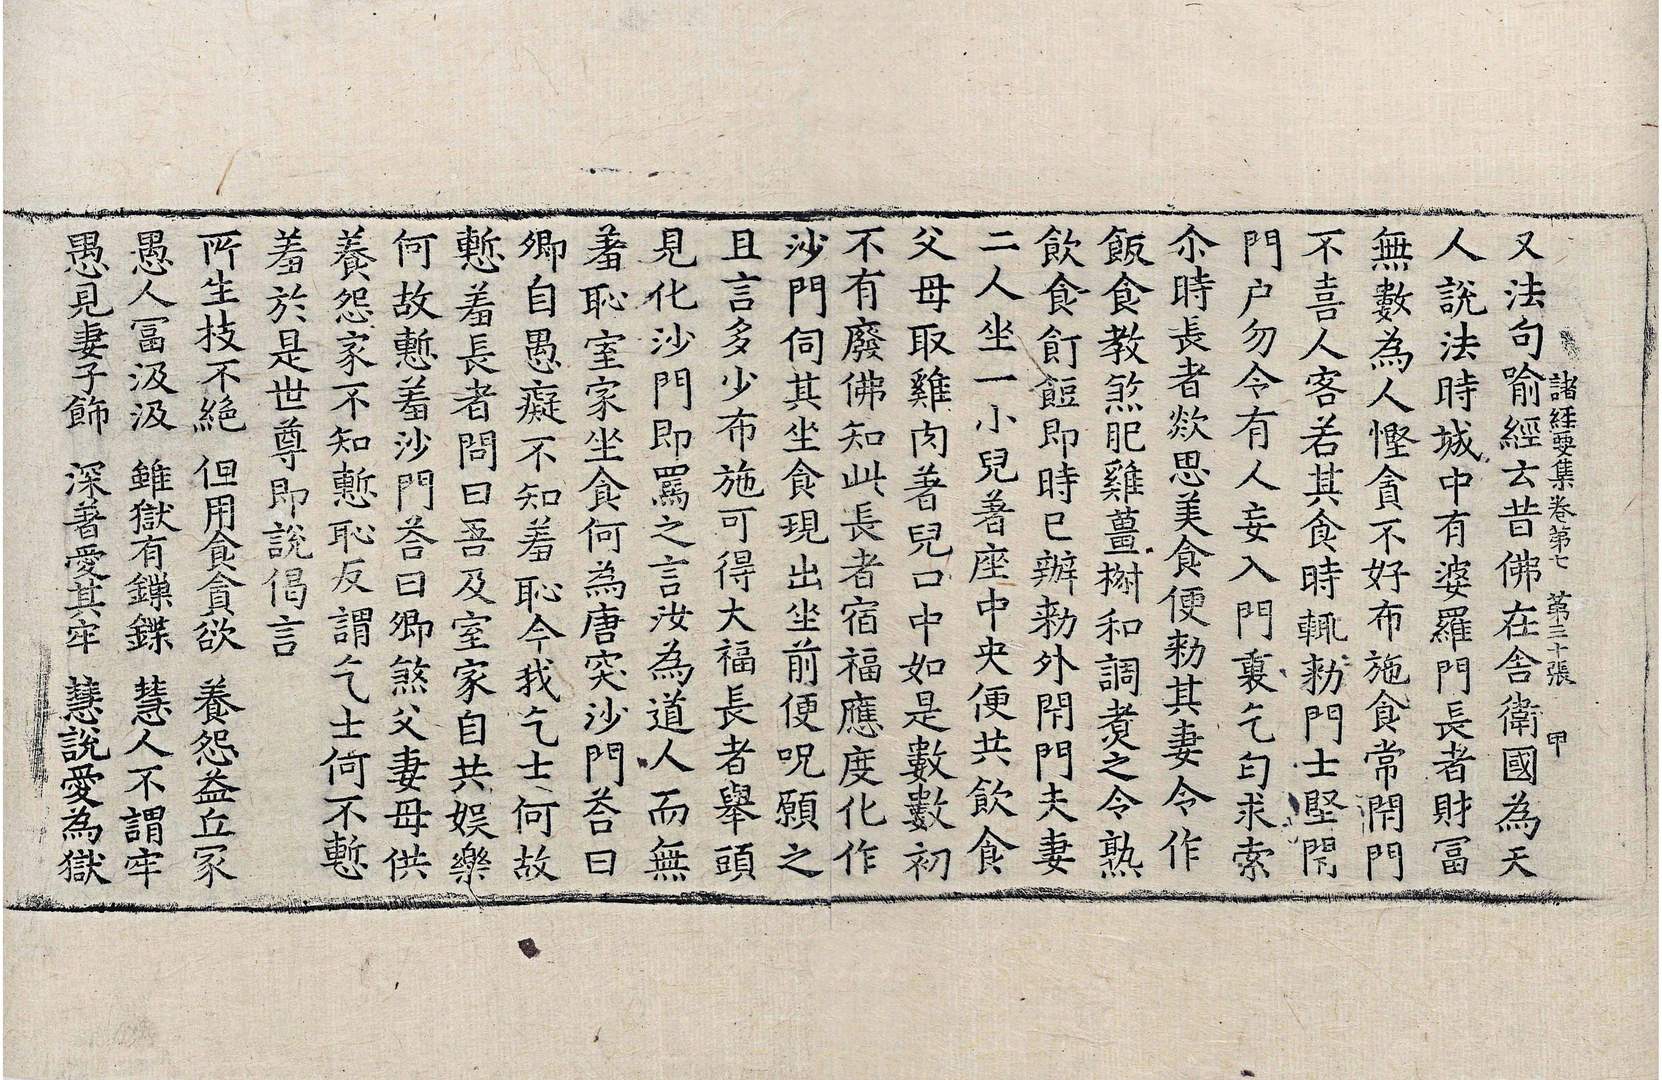 諸経要集卷第七 第三十張 甲
又法句喻經云昔佛在舍衛國為天
人說法時城中有婆羅門長者財冨
無數為人慳貪不好布施食常閇門
不喜人客若其食時輒勑門士堅閇
門户勿令有人妄入門裏乞匃求索
尒時長者欻思美食便勑其妻令作
飯食教煞肥雞薑𣗳和調煑之令熟
飲食飣餖即時已辦勑外閇門夫妻
二人坐一小兒著座中央便共飲食
父母取雞肉著兒口中如是數數初
不有廢佛知此長者宿福應度化作
沙門伺其坐食現出坐前便呪願之
且言多少布施可得大福長者舉頭
見化沙門即罵之言汝為道人而無
羞恥室家坐食何為唐突沙門荅曰
卿自愚癡不知羞恥今我乞士何故
慙羞長者問曰吾及室家自共娛樂
何故慙羞沙門荅曰卿煞父妻母供
養怨家不知慙恥反謂乞士何不慙
羞於是世尊即說偈言
所生技不絶 但用食貪欲 養怨益丘冢
愚人冨汲汲 雖獄有鏁鍱 慧人不謂牢
愚見妻子飾 深著愛其牢 慧說愛為獄